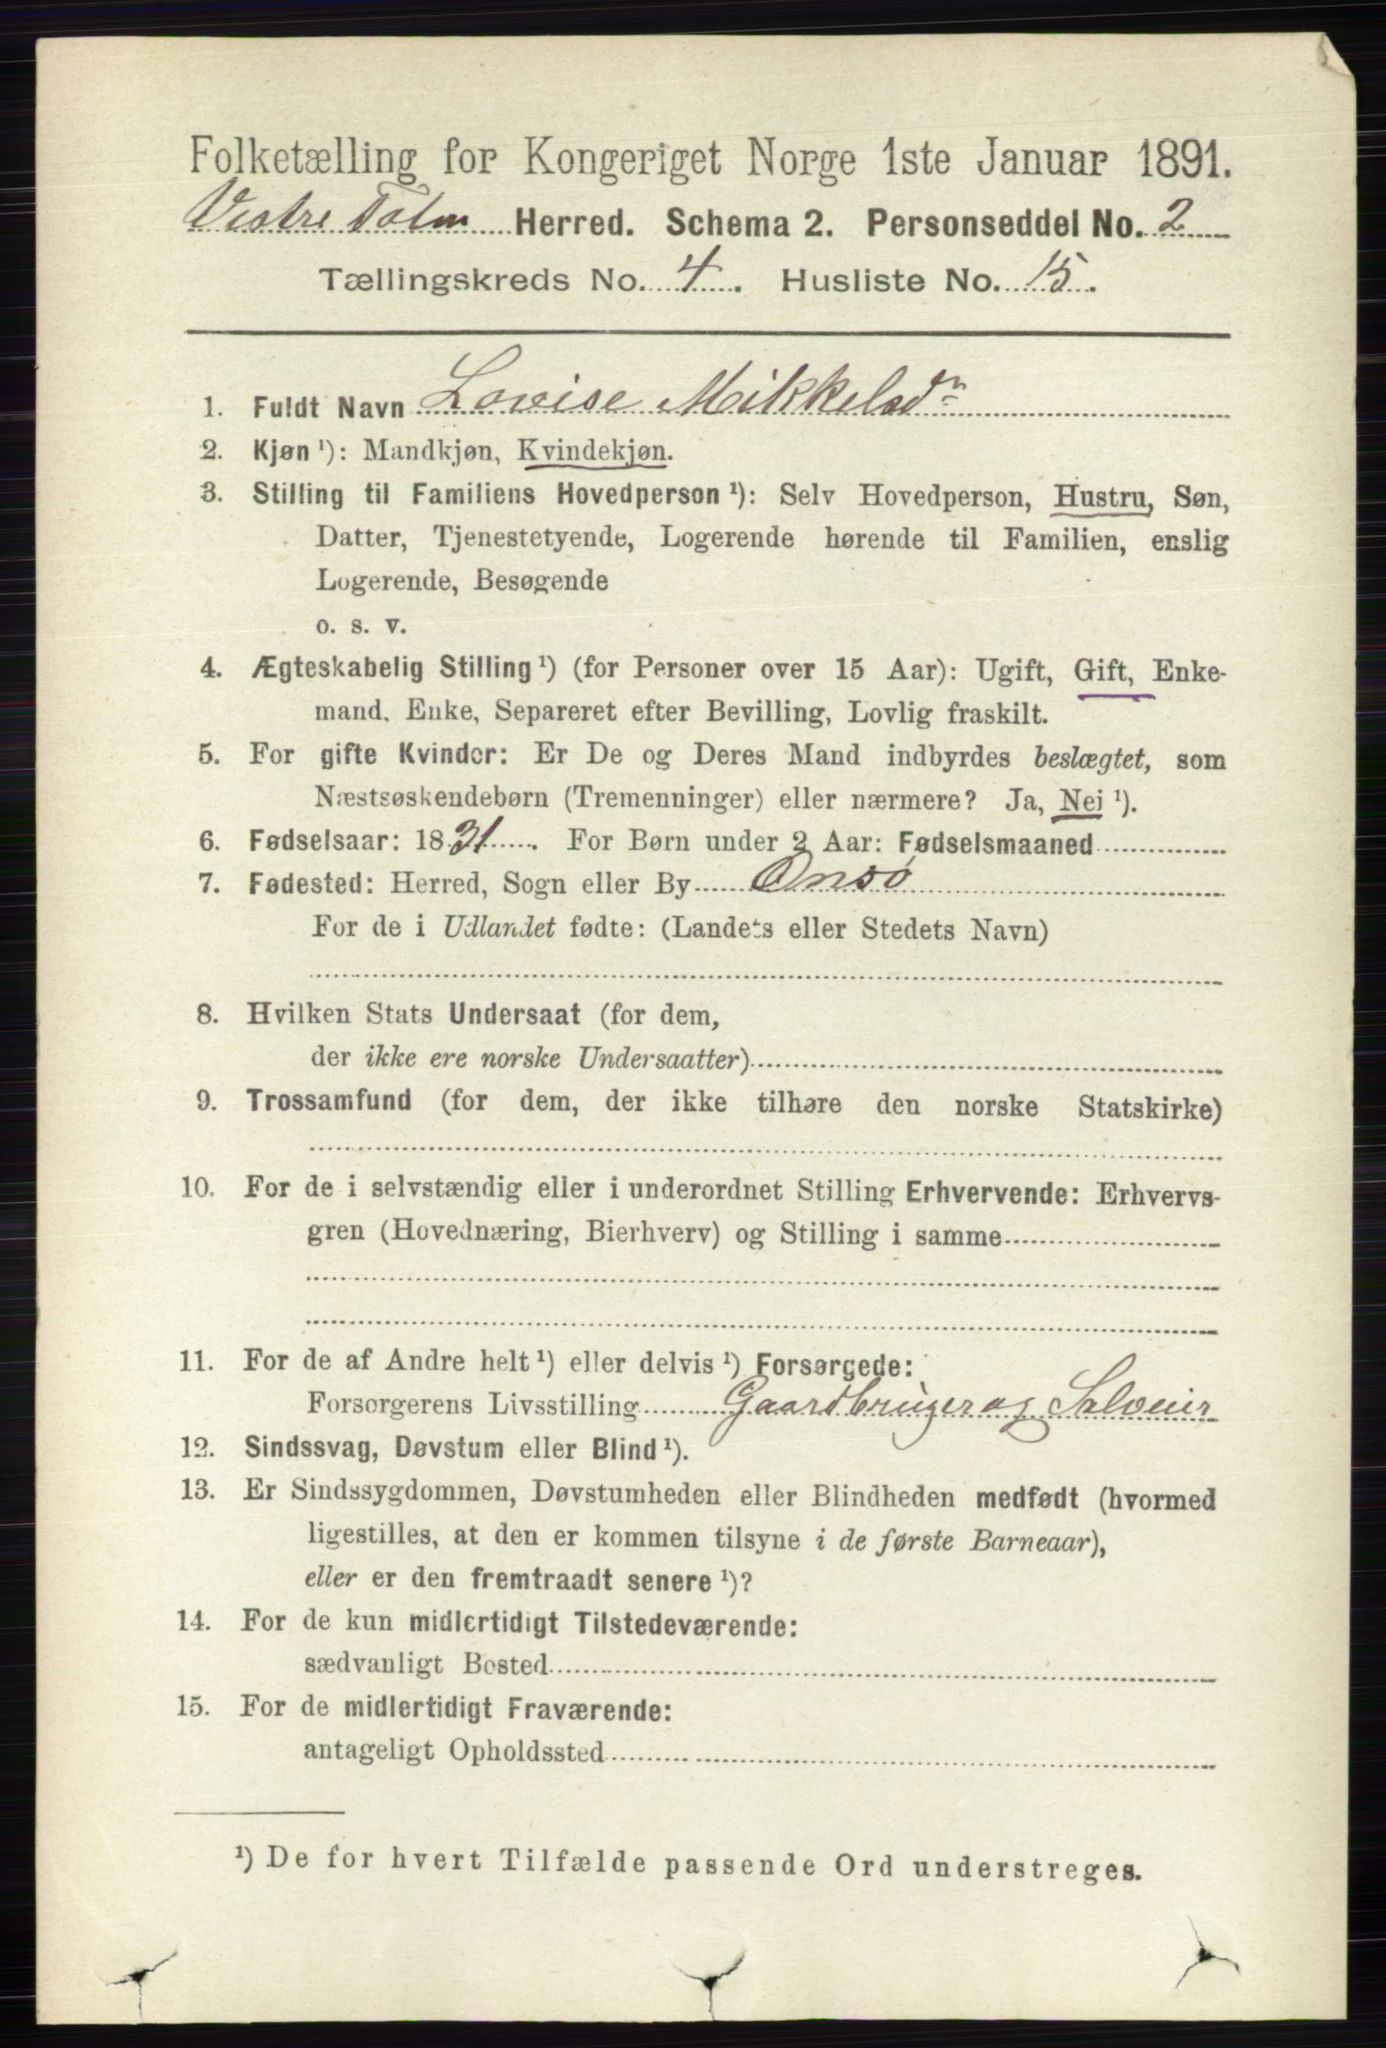 Folketælling for Kongeriget Norge 1ste Januar 1891.
Vestre Toten Herred. Schema 2. Personseddel No. 2
Tællingskreds No. 4. Husliste No. 15.
1. Fuldt Navn Lovise Mikkelsdn
2. Kjøn ¹): Mandkjøn, Kvindekjøn.
3. Stilling til Familiens Hovedperson ¹): Selv Hovedperson, Hustru, Søn,
Datter, Tjenestetyende, Logerende hørende til Familien, enslig
Logerende, Besøgende
o. s. v.
4. Ægteskabelig Stilling ¹) (for Personer over 15 Aar): Ugift, Gift, Enke-
mand, Enke, Separeret efter Bevilling, Lovlig fraskilt.
5. For gifte Kvinder: Er De og Deres Mand indbyrdes beslægtet, som
Næstsøskendebørn (Tremenninger) eller nærmere? Ja, Nei ¹).
6. Fødselsaar: 1831. For Børn under 2 Aar: Fødselsmaaned
7. Fødested: Herred, Sogn eller By Onsø
For de i Udlandet fødte: (Landets eller Stedets Navn)
8. Hvilken Stats Undersaat (for dem,
der ikke ere norske Undersaatter)
9. Trossamfund (for dem, der ikke tilhøre den norske Statskirke)
10. For de i selvstændig eller i underordnet Stilling Erhvervende: Erhvervs-
gren (Hovednæring, Bierhverv) og Stilling i samme
11. For de af Andre helt ¹) eller delvis ¹) Forsørgede:
Forsørgerens Livsstilling Gaardbruger og Selveier
12. Sindssvag, Døvstum eller Blind ¹).
13. Er Sindssygdommen, Døvstumheden eller Blindheden medfødt (hvormed
ligestilles, at den er kommen tilsyne i de første Barneaar),
eller er den fremtraadt senere ¹)?
14. For de kun midlertidigt Tilstedeværende:
sædvanligt Bosted
15. For de midlertidigt Fraværende:
antageligt Opholdssted
¹) De for hvert Tilfælde passende Ord understreges.